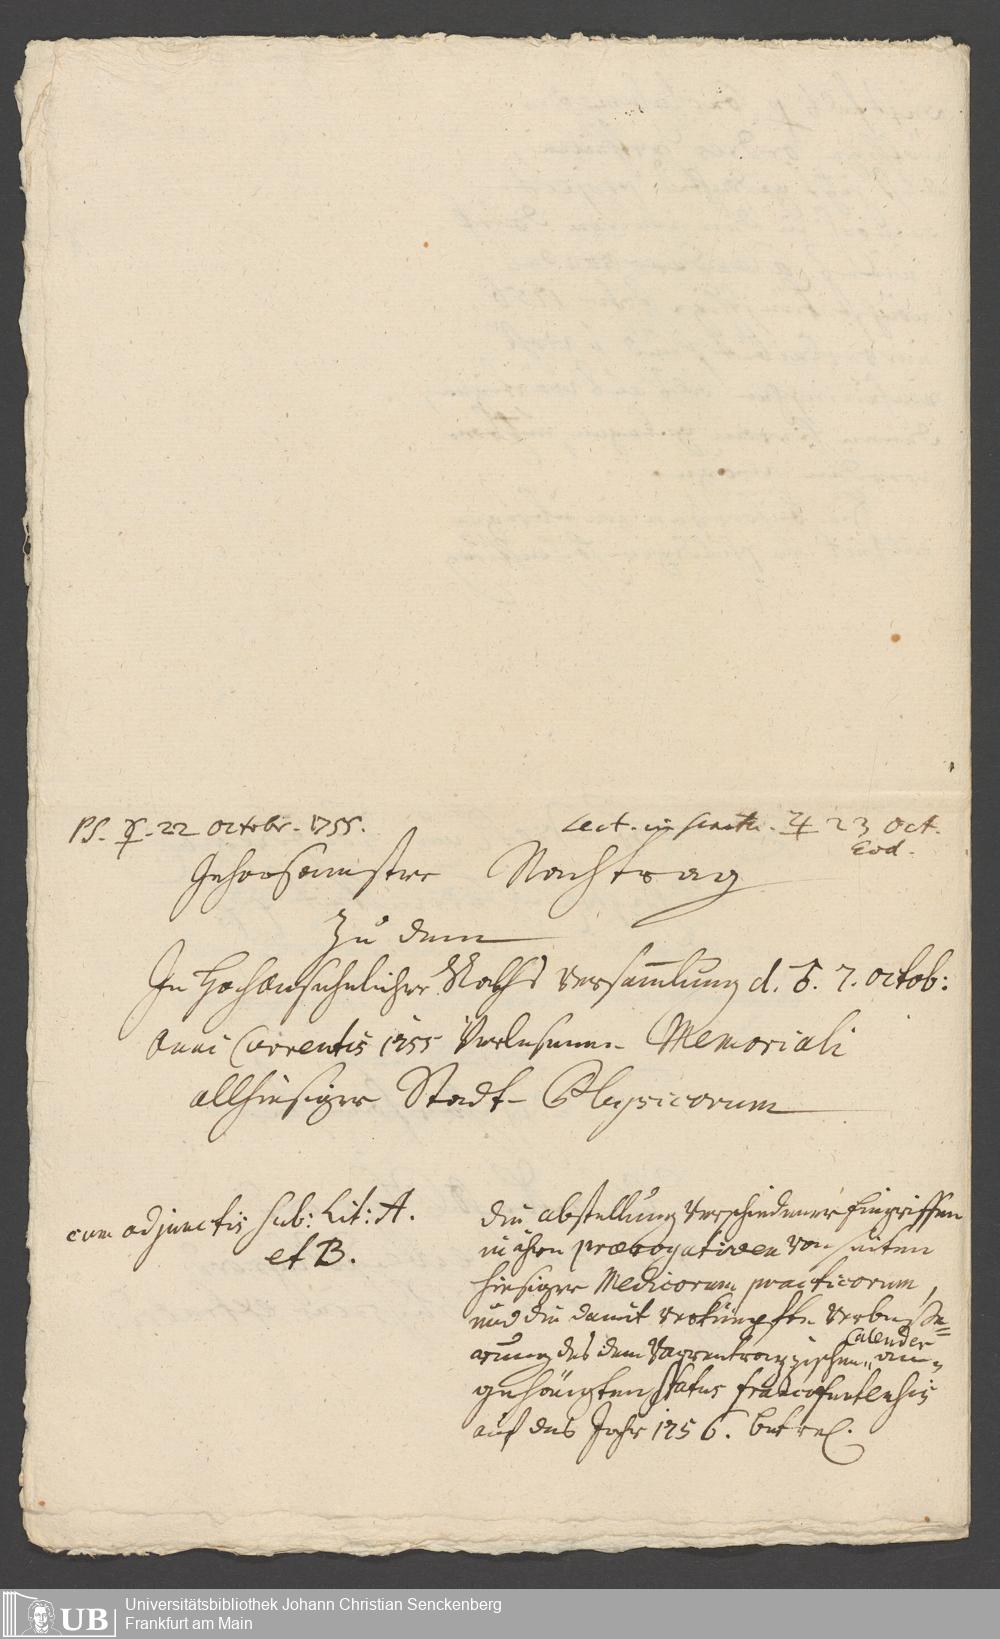 PS. ☿. 22 Octobr. 1755.
Lect. in Senatu. ♃ 23 Oct.
Eod.
Gehorsamster Nachtrag
Zu dem
In Hochansehnlicher Raths Versam̄lung d. 7. Octob:
Anni Currentis 1755 Verlesenen Memoriali
allhiesiger Stadt-Physicorum
cum adjunctis sub: Lit: A.
et B.
die abstellung Verschiedener Eingriffen
in ihre praerogativen Von seiten
hiesiger Medicorum practicorum,
und die damit verknüpfte Verbesse=
rung des dem Varrentrappischen Calender an=
gehängten status francofurtensis
auf das Jahr 1756. betref.
UB
Universitätsbibliothek Johann Christian Senckenberg
Frankfurt am Main